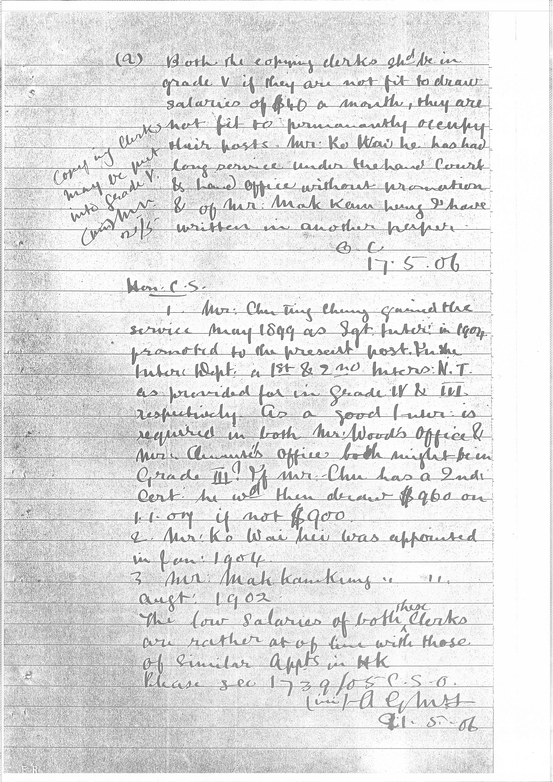 (2) Both the copying clerks shd be in
grade V if they are not fit to draw
salaries of $40 a month, they are
not fit to permanantly occupy
their posts. Mr. Ko Wai he has had
long service under the Land Court
& Land Office without promotion
& of Mr. Mak Kam kung I have
written in another paper.
Copying clerks
may be put
into grade V.
G. C
17.5.06
Hon. C.S.
1. Mr. Chu Ting Chung gained the
service May 1899 as Sgt Inter: in 1904
promoted to the present post. In the
Inter: Dept. a 1st & 2nd Inters: N.T.
as provided for in Grade IV & III
respectively. As a good Inter: is
required in both Mr. Wood's Office &
Mr. Office both might be in
Grade III? If Mr. Chu has a 2nd:
Cert. he wd then draw $960 on
1.1.07 if not $900.
2. Mr. Ko Wai hei was appointed
in Jan: 1904.
3 Mr. Mak Kam Kung " "
augt. 1902.
The low salaries of both these Clerks
are rather at of line with those
of Similar Appts in HK
Please see 1739/05 C.S.O.
21.5.06